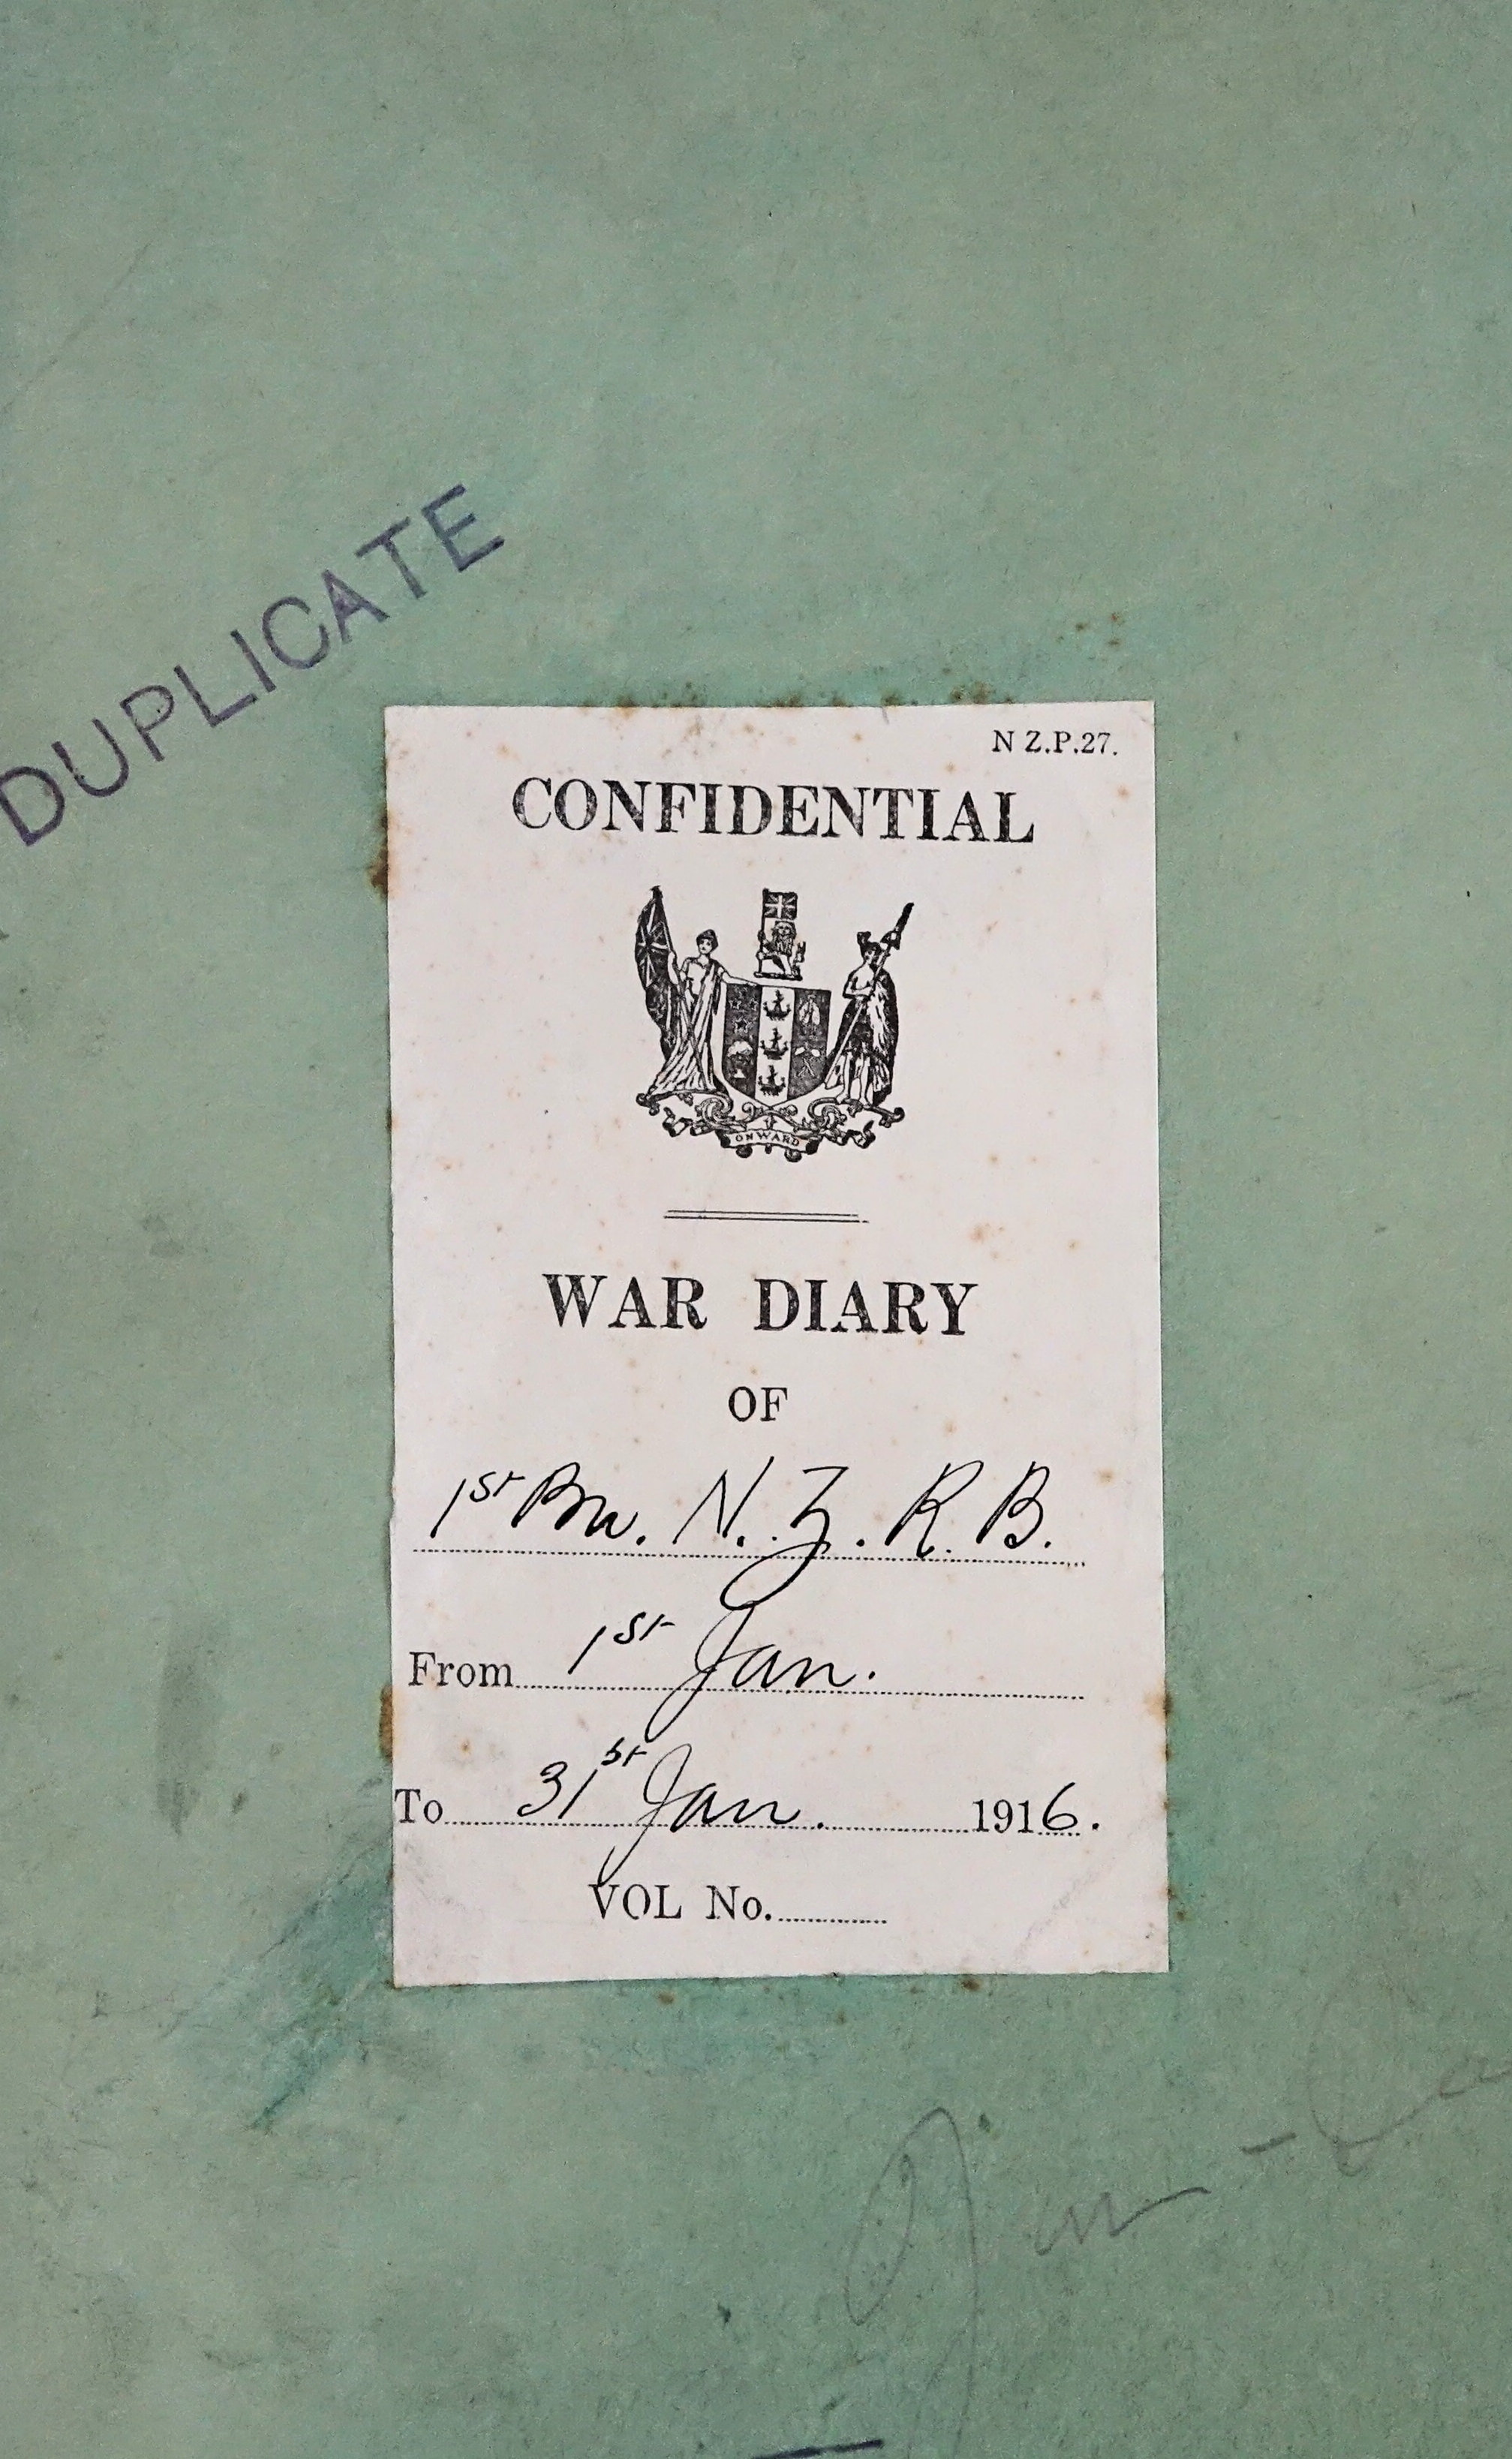 DUPLICATE
N Z.P.27.
CONFIDENTIAL
ONWARD
WAR DIARY
OF
1st Bn. N.Z.R.B.
From 1st Jan.
To 31st Jan. 1916.
VOL No.